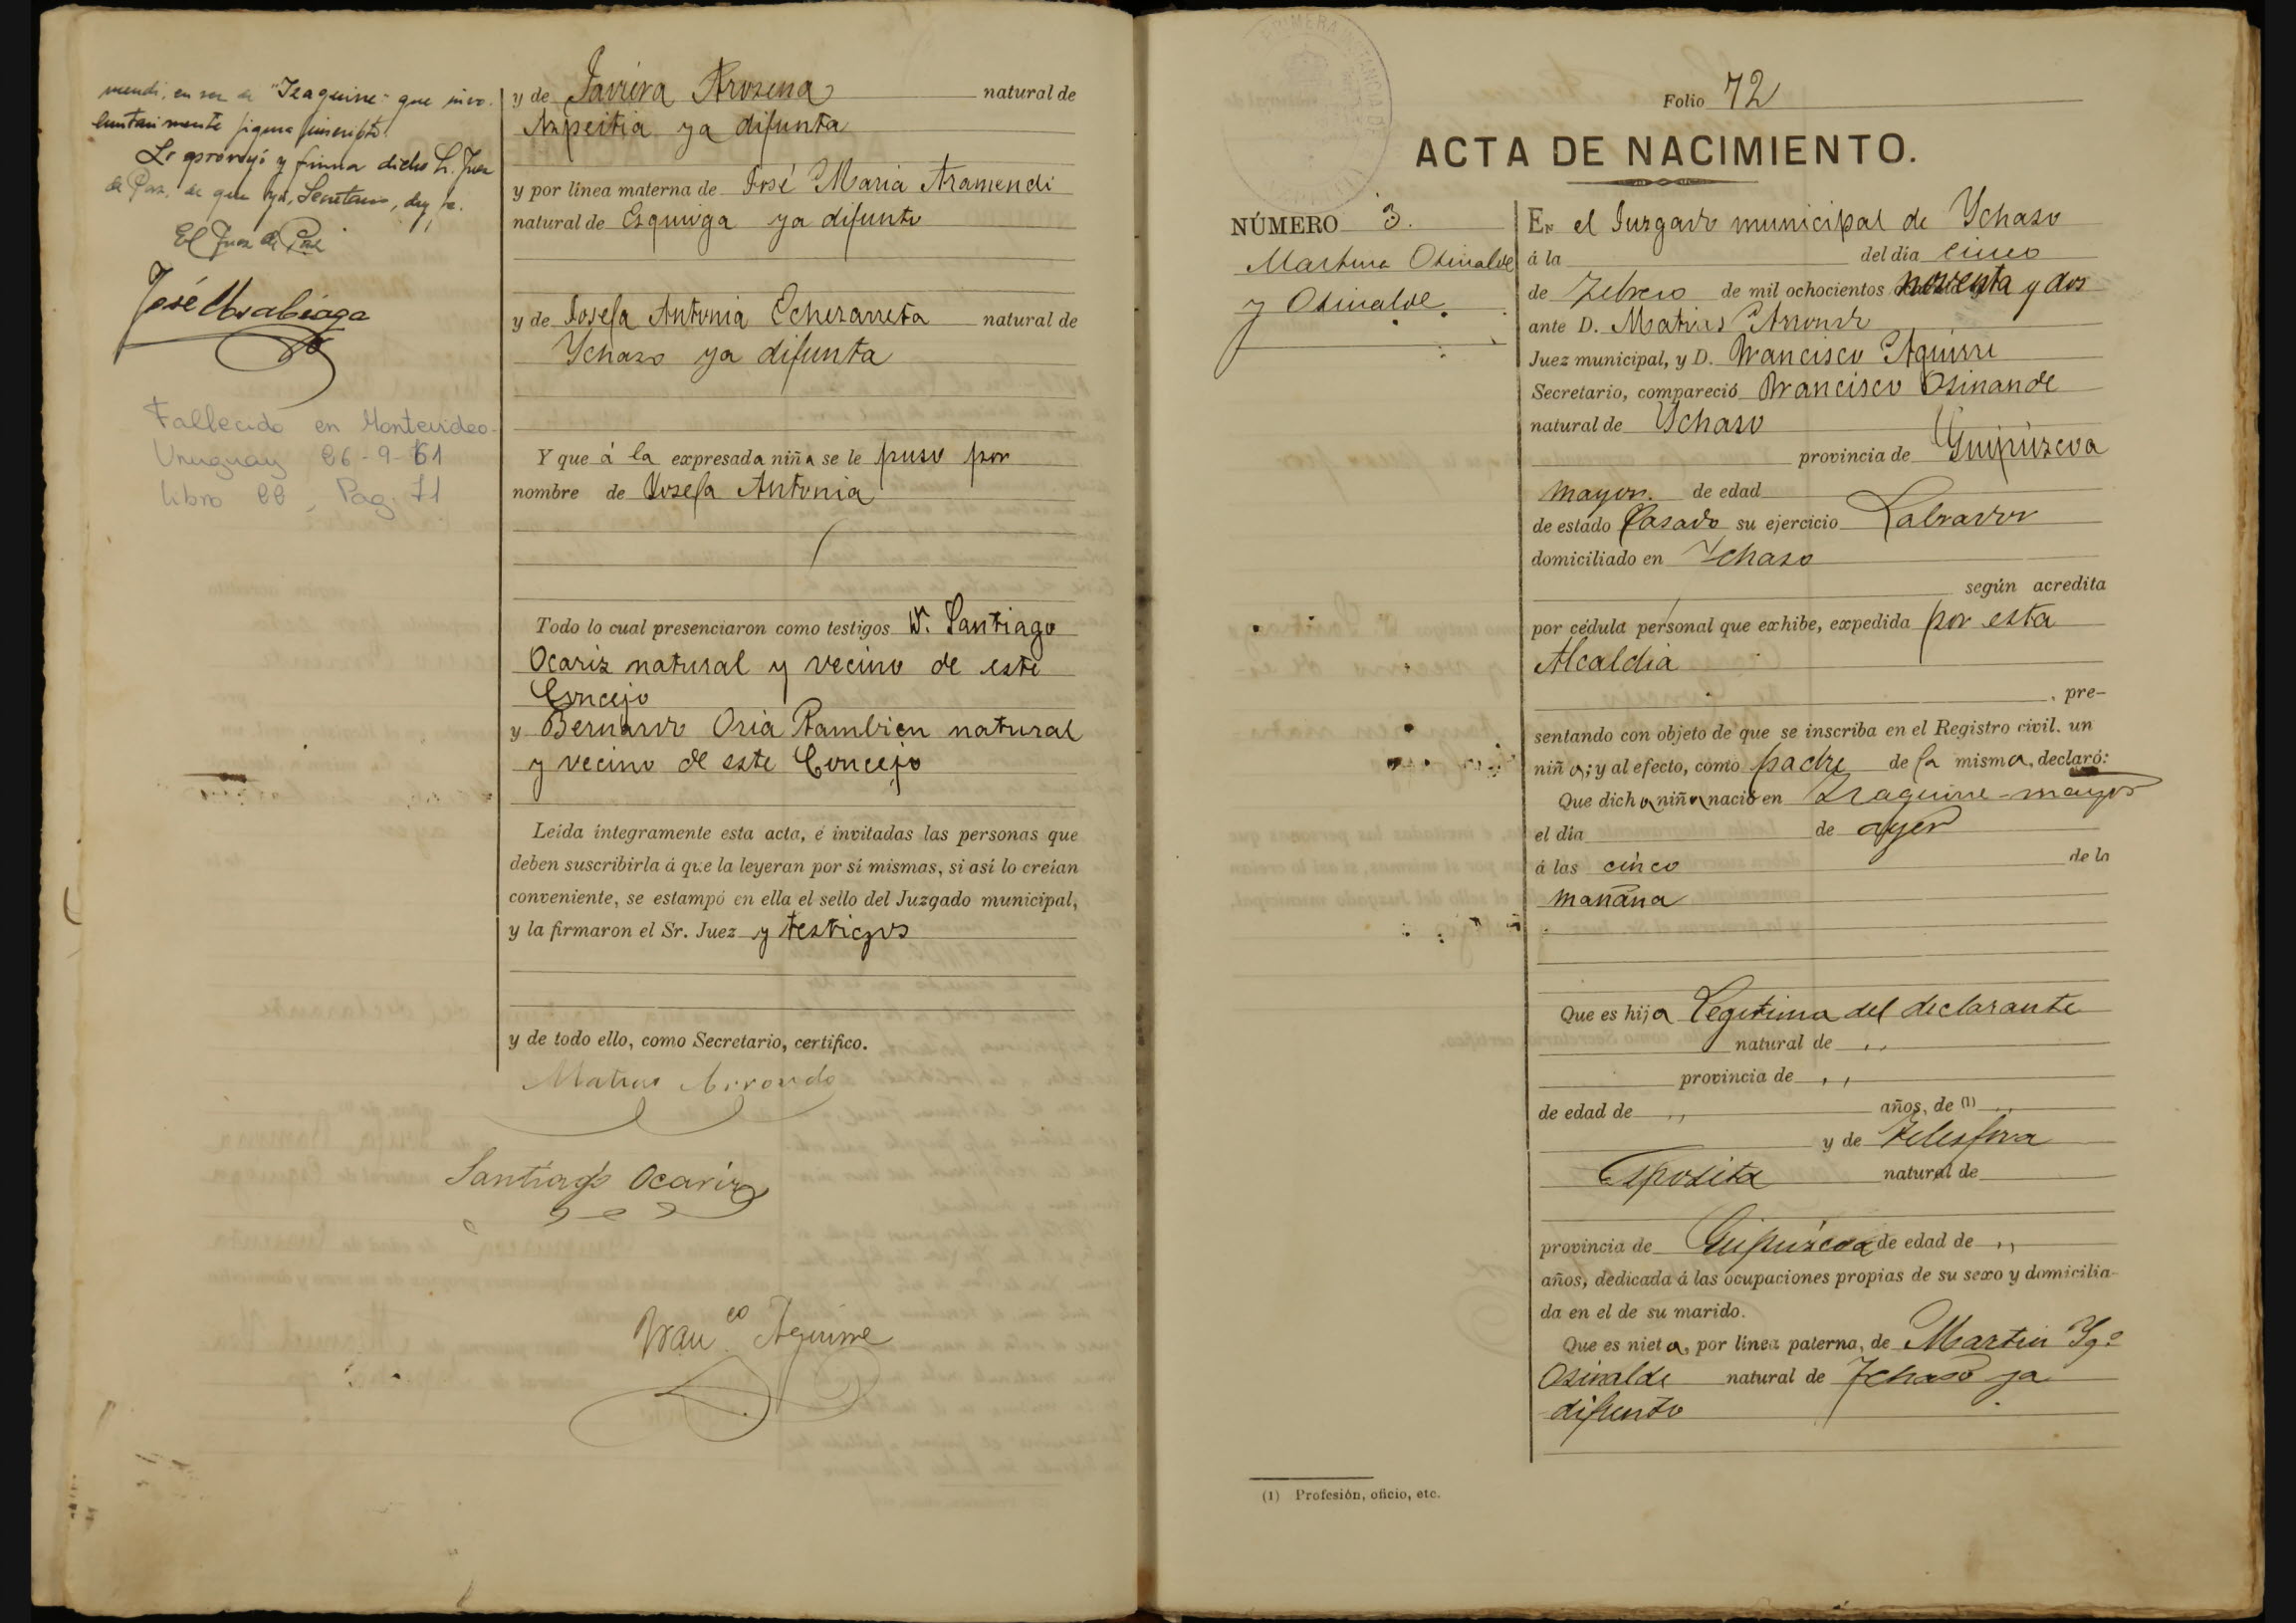 mendi, en vez de "Izaguirre" que invo-
luntariamente figura inscripto.
Lo proveyó y firma dicho Sr. Juez
de Paz, de que yo, Secretario, doy fe.
El Juez de Paz
José Usabiaga
Fallecido en Montevideo-
Uruguay 26-9-61
libro 22, Pag. 71
y de Javiera Arozena natural de
Azpeitia ya difunta
y por línea materna de José Maria Aramendi
natural de Ezquioga ya difunto
y de Josefa Antonia Echezarreta natural de
Ychaso ya difunta
Y que á la expresada niña se le puso por
nombre de Josefa Antonia
Todo lo cual presenciaron como testigos D. Santiago
Ocariz natural y vecino de este
Concejo
y Bernardo Oria tambien natural
y vecino de este Concejo
Leída íntegramente esta acta, é invitadas las personas que
deben suscribirla á que la leyeran por sí mismas, si así lo creían
conveniente, se estampó en ella el sello del Juzgado municipal,
y la firmaron el Sr. Juez y testigos
y de todo ello, como Secretario, certifico.
Matias Arrondo
Santiago Ocariz
Fran.co Aguirre
PRIMERA INSTANCIA DE
Folio 72
ACTA DE NACIMIENTO.
NÚMERO 3.
Martina Osinalde
y Osinalde.
En el Juzgado municipal de Ychaso
á la del día cinco
de Febrero de mil ochocientos noventa y dos
ante D. Matias Arrondo
Juez municipal, y D. Francisco Aguirre
Secretario, compareció Francisco Osinande
natural de Ychaso
provincia de Guipúzcoa
mayor. de edad
de estado Casado su ejercicio Labrador
domiciliado en Ychaso
según acredita
por cédula personal que exhibe, expedida por esta
Alcaldia
, pre-
sentando con objeto de que se inscriba en el Registro civil, un
niña; y al efecto, como padre de la misma, declaró:
Que dicha niña nació en Izaguirre-mayor
el día de ayer
á las cinco de la
mañana
Que es hija Legitima del declarante
natural de ,,
provincia de ,,
de edad de ,, años, de (1) ,,
y de Telesfora
Esposita natural de
provincia de Guipúzcoa de edad de ,,
años, dedicada á las ocupaciones propias de su sexo y domicilia-
da en el de su marido.
Que es nieta, por línea paterna, de Martin Yg.º
Osinalde natural de Ychaso ya
difunto
(1) Profesión, oficio, etc.